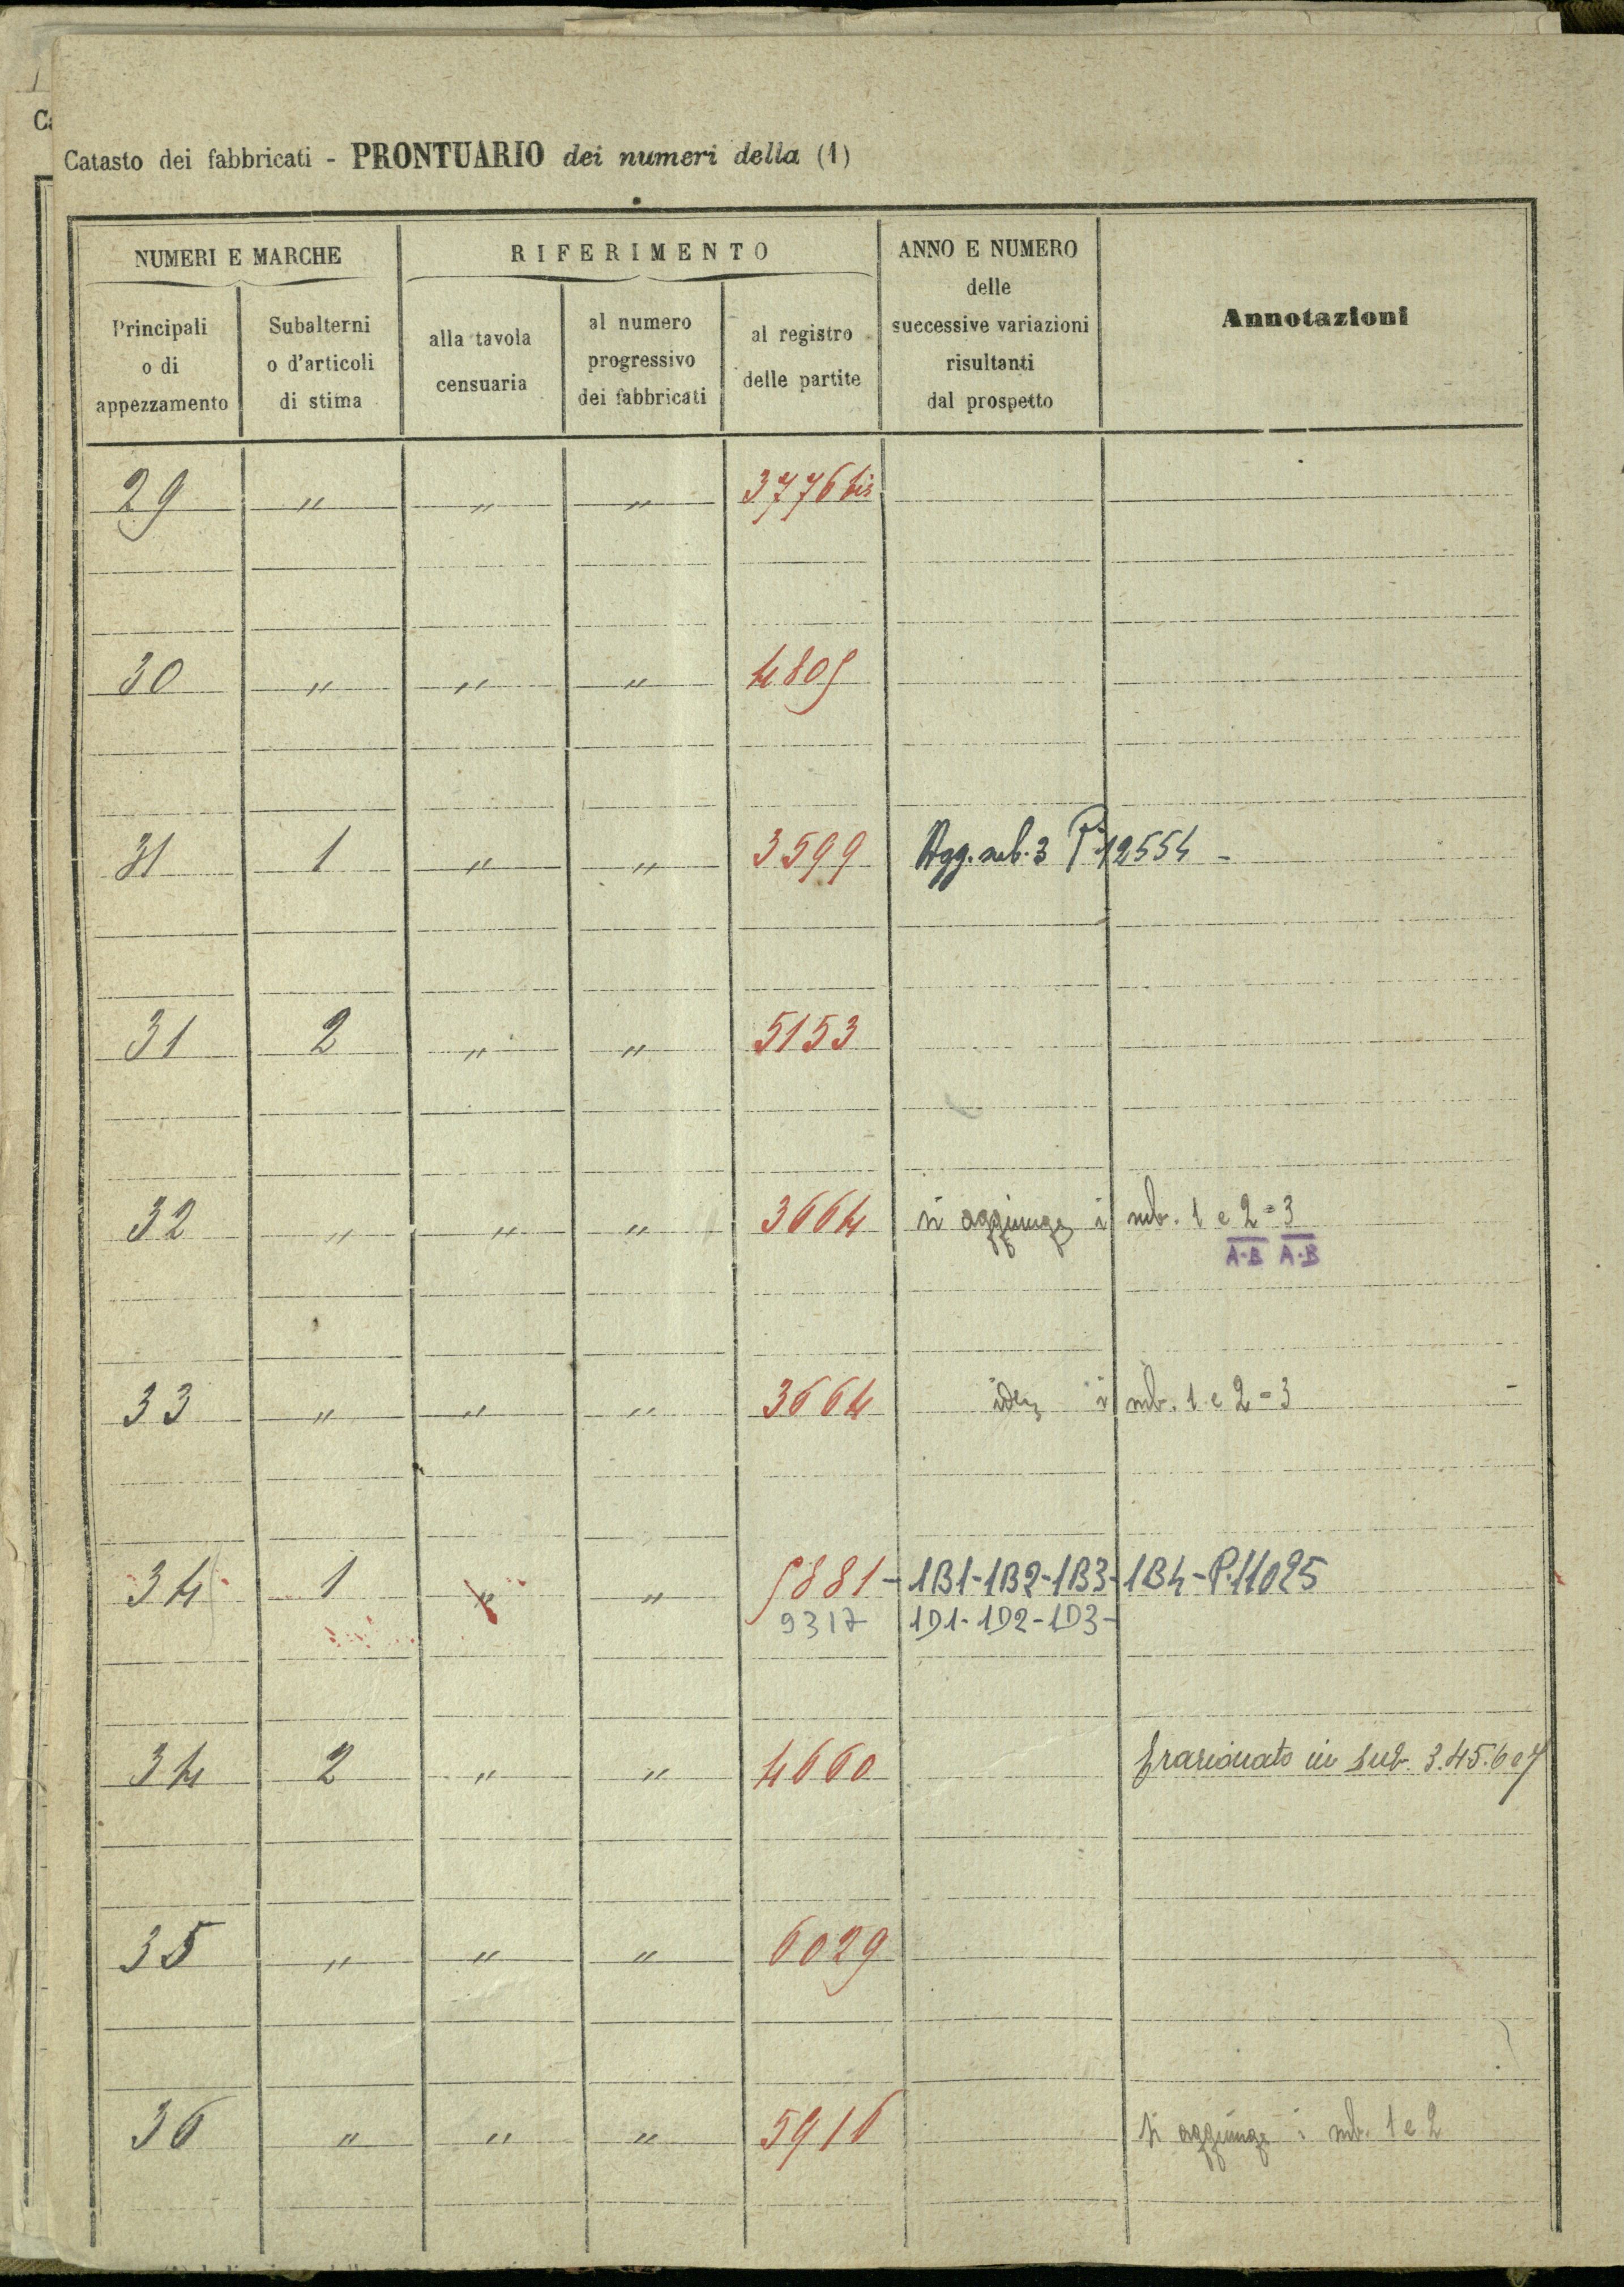 Catasto dei fabbricati - PRONTUARIO dei numeri della (1)
NUMERI E MARCHE
RIFERIMENTO
ANNO E NUMERO
delle
successive variazioni
risultanti
dal prospetto
Annotazioni
Principali
o di
appezzamento
Subalterni
o d'articoli
di stima
alla tavola
censuaria
al numero
progressivo
dei fabbricati
al registro
delle partite
29 " " " 3776 bis
30 " " " 4805
31 1 " " 3599 Agg. sub. 3 P. 12554 -
31 2 " " 5153
32 " " " 3664 si aggiunge i sub. 1 e 2 = 3
A-B A-B
33 " " " 3664 idem i sub. 1 e 2 = 3 -
34 1 " " 5881 - 1B1 - 1B2 - 1B3 - 1B4 - P. 11025
9317 1D1 - 1D2 - 1D3 -
34 2 " " 4660 frazionato in sub. 3.4.5.6 e 7
35 " " " 6029
36 " " " 5916 si aggiunge i sub. 1 e 2